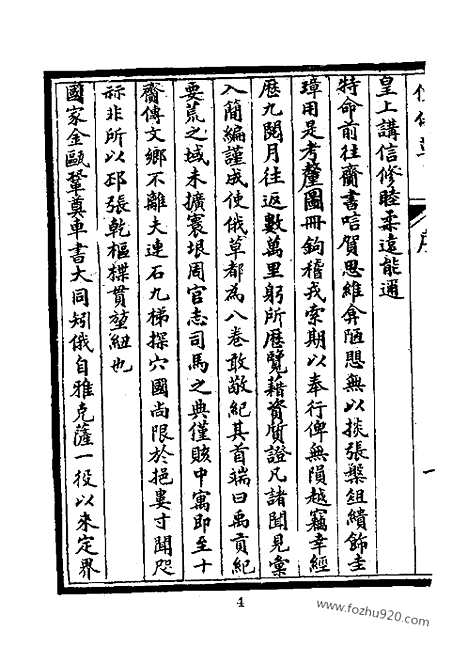 序
一
皇上講信修睦柔遠能邇
特命前往齎書唁賀思維弇陋愳無以掞張槃組繢飾圭
璋用是考釐圖冊鉤稽戎索期以奉行俾無隕越竊幸經
歷九閱月往返數萬里躬所歷覽藉資質證凡諸聞見彙
入簡編謹成使俄草都為八卷敢敬紀其首端曰禹貢紀
要荒之域未擴寰垠周官志司馬之典僅賅中寓即至十
齋傳文鄉不離夫連石九梯探穴國尚限於挹婁寸聞咫
眎非所以邳張乾樞楪貫堃紐也
國家金甌鞏奠車書大同矧俄自雅克薩一役以來定界
4
www.fozhu920.com